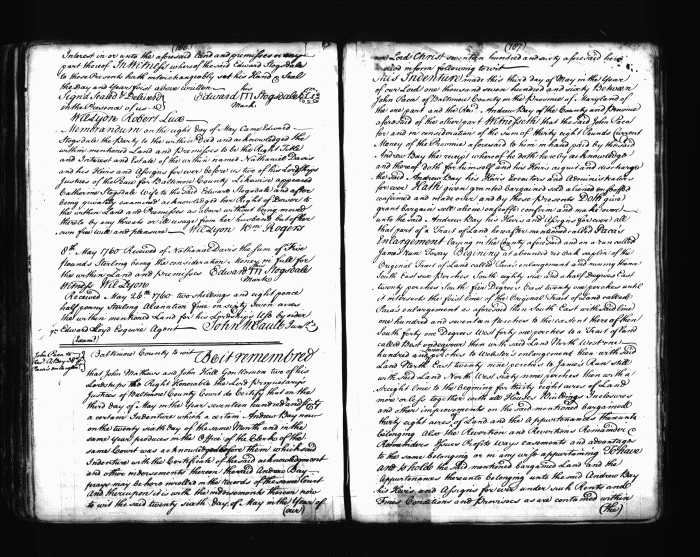 (166)
Interest in or unto the aforesaid Land and premisses or any
part thereof In Witness whereof the said Edward Stogsdale
to these Presents hath interchangeably set his Hand & Seal
the Day and Year first above written his
Sign'd Seal'd & Deliver'd Edward M Stogsdale
in the Presence of us Mark
Will Lyon Robert Lux
Memorandum on the eight Day of May Came Edward
Stogsdale the Party to the within Deed and acknowledged the
within mentioned Land and Premisses to be the Right Title
and Interest and Estate of the within named Nathaniel Davis
and his Heirs and Assigns forever before us two of his Lordships
Justices of the Peace for Baltimore County Likewise appeared
Catherine Stogsdale Wife to the said Edward Stogsdale and after
being privately examined acknowledged her Right of Dower to
the within Land and Premisses as above without being moved
thereto by any threats or ill usage from her husband but of her
own free will and pleasure Will Lyon Wm Rogers
8th May 1760 Received of Nathaniel Davis the sum of Five
pounds Sterling being the consideration Money in full for
the within Land and premisses Edward M Stogsdale
Witness Will Lyon Mark
Received May 26th 1760 two shillings and eight pence
half penny Sterling Alienation fine on sixty seven acres
the within mentioned Land for his Lordships Use by order
Edward Loyd Esquire Agent John McCaule Junr.
Baltimore County to wit Be it remembred
that John Mathews and John Hall Gentlemen two of his
Lordships the Right Honorable the Lord Proprietary's
Justices of Baltimore County Court do Certify that on the
third Day of May in the Year seventeen hundred and sixty
a certain Indenture which a certain Andrew Bay now
on the twenty sixth Day of the same Month and in the
same Year produces in the Office of the Clerk of the
same Court was acknowledged before them which said
Indenture with the Certificate of the said acknowledgment
and other indorsments thereon the said Andrew Bay
prays may be here enrolled in the records of the same Court
and thereupon it is with the indorsements thereon now
to wit the said twenty sixth Day of May in the Year of
(our)
(167)
our Lord Christ seventeen hundred and sixty aforesaid here
enrolled in form following to wit
This Indenture made this third Day of May in the Year
of our Lord one thousand seven hundred and sixty Between
John Paca of Baltimore County in the Province of Maryland of
the one part and the Revd. Andrew Bay of the County and Province
aforesaid of the other part Witnesseth that the said John Paca
for and in consideration of the Sum of thirty eight Pounds Current
Money of the Province aforesaid to him in hand paid by the said
Andrew Bay the receipt whereof he doth hereby acknowledge
and thereof doth for himself and his Heirs acquit and discharge
the said Andrew Bay his Heirs Executors and Administrators
for ever Hath given granted bargained sold aliened enfeoffed
confirmed and made over and by these presents Doth give
grant bargain sell alien enfeoff confirm and make over
unto the said Andrew Bay his Heirs and Assigns for ever all
that part of a Tract of Land hereafter mentioned called Paca's
Enlargement laying in the County aforesaid and on a run called
James's run Today Begining at a bounded red Oak sapling of the
Original Tract of Land called Paca's enlargement and running thence
South East six perches South eighty six and a half Degrees East
twenty perches South five Degrees East twenty one perches until
it intersects the first line of the Original Tract of Land called
Paca's enlargement as aforesaid then South East with said line
one hundred and seventeen perches to the eastern there of then
South forty one Degrees West forty one perches to a Tract of land
called Best endeavour then with said Land North West one
hundred and perches to Webster's enlargement then with said
Land North East twenty nine perches to James's Run still
with said Land North West sixty nine perches then with a
straight line to the begining for thirty eight acres of Land
more or less together with all Houses Buildings Inclosures
and other improvements on the said mentioned bargained
thirty eight acres of Land and the Appurtenances thereunto
belonging Also the Reversion and Reversions Remainder &
Remainders Issues Profits Ways easements and advantages
to the same belonging or in any wise appertaining To have
and to hold the said mentioned bargained Land and the
Appurtenances thereunto belonging unto the said Andrew Bay
his Heirs and Assigns for ever under such Rents and
Fines Conditions and Provisoes as are contained within
(the)